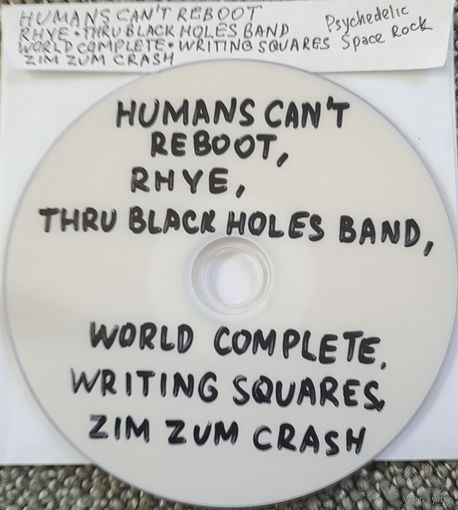 HUMANS CAN'T REBOOT
RHYE • THRU BLACK HOLES BAND
WORLD COMPLETE • WRITING SQUARES
ZIM ZUM CRASH
Psychedelic
Space Rock
HUMANS CAN'T
REBOOT,
RHYE,
THRU BLACK HOLES BAND,
WORLD COMPLETE,
WRITING SQUARES,
ZIM ZUM CRASH